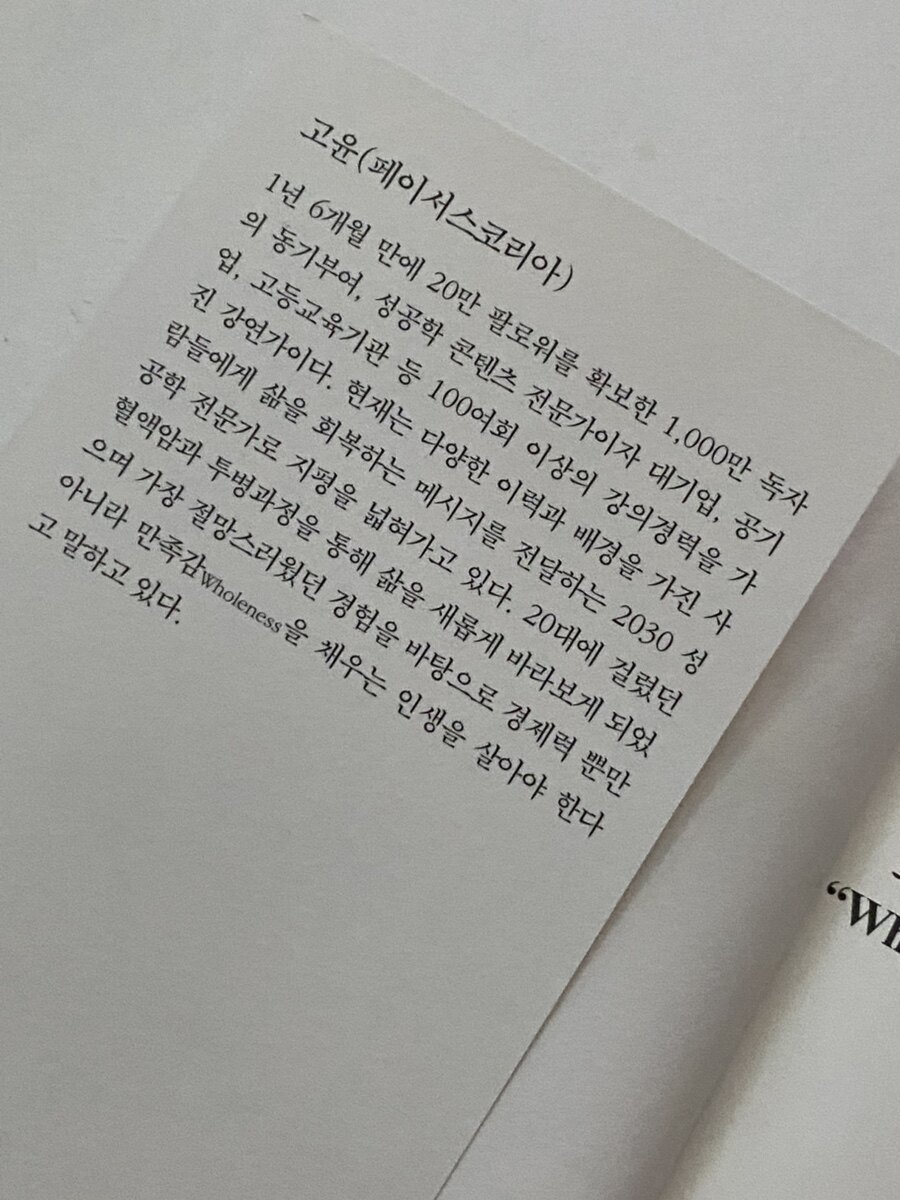 고윤(페이서스코리아)
1년 6개월 만에 20만 팔로워를 확보한 1,000만 독자
의 동기부여, 성공학 콘텐츠 전문가이자 대기업, 공기
업, 고등교육기관 등 100여회 이상의 강의경력을 가
진 강연가이다. 현재는 다양한 이력과 배경을 가진 사
람들에게 삶을 회복하는 메시지를 전달하는 2030 성
공학 전문가로 지평을 넓혀가고 있다. 20대에 걸렸던
혈액암과 투병과정을 통해 삶을 새롭게 바라보게 되었
으며 가장 절망스러웠던 경험을 바탕으로 경제력 뿐만
아니라 만족감Wholeness을 채우는 인생을 살아야 한다
고 말하고 있다.